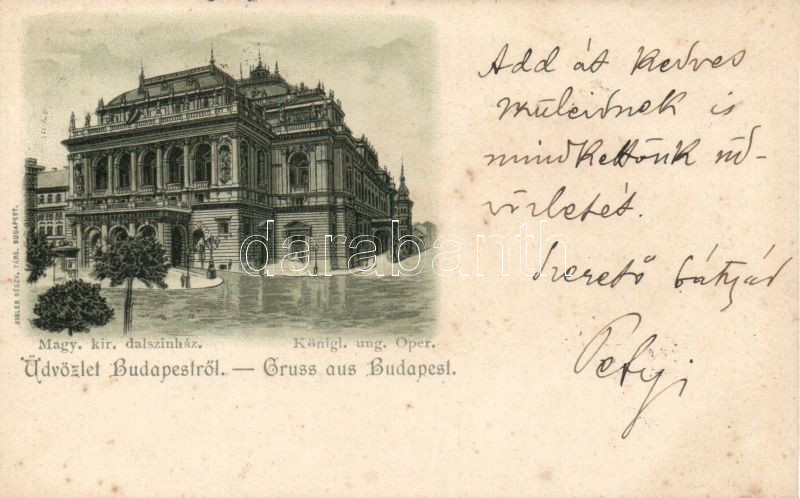 Add át kedves
is
mindkettőnk üd-
vözletét.
Szerető bátyád
Petyi
darabanth
RIGLER RÉSZV. TÁRS. BUDAPEST.
Magy. kir. dalszinház. Königl. ung. Oper.
Üdvözlet Budapestről. — Gruss aus Budapest.